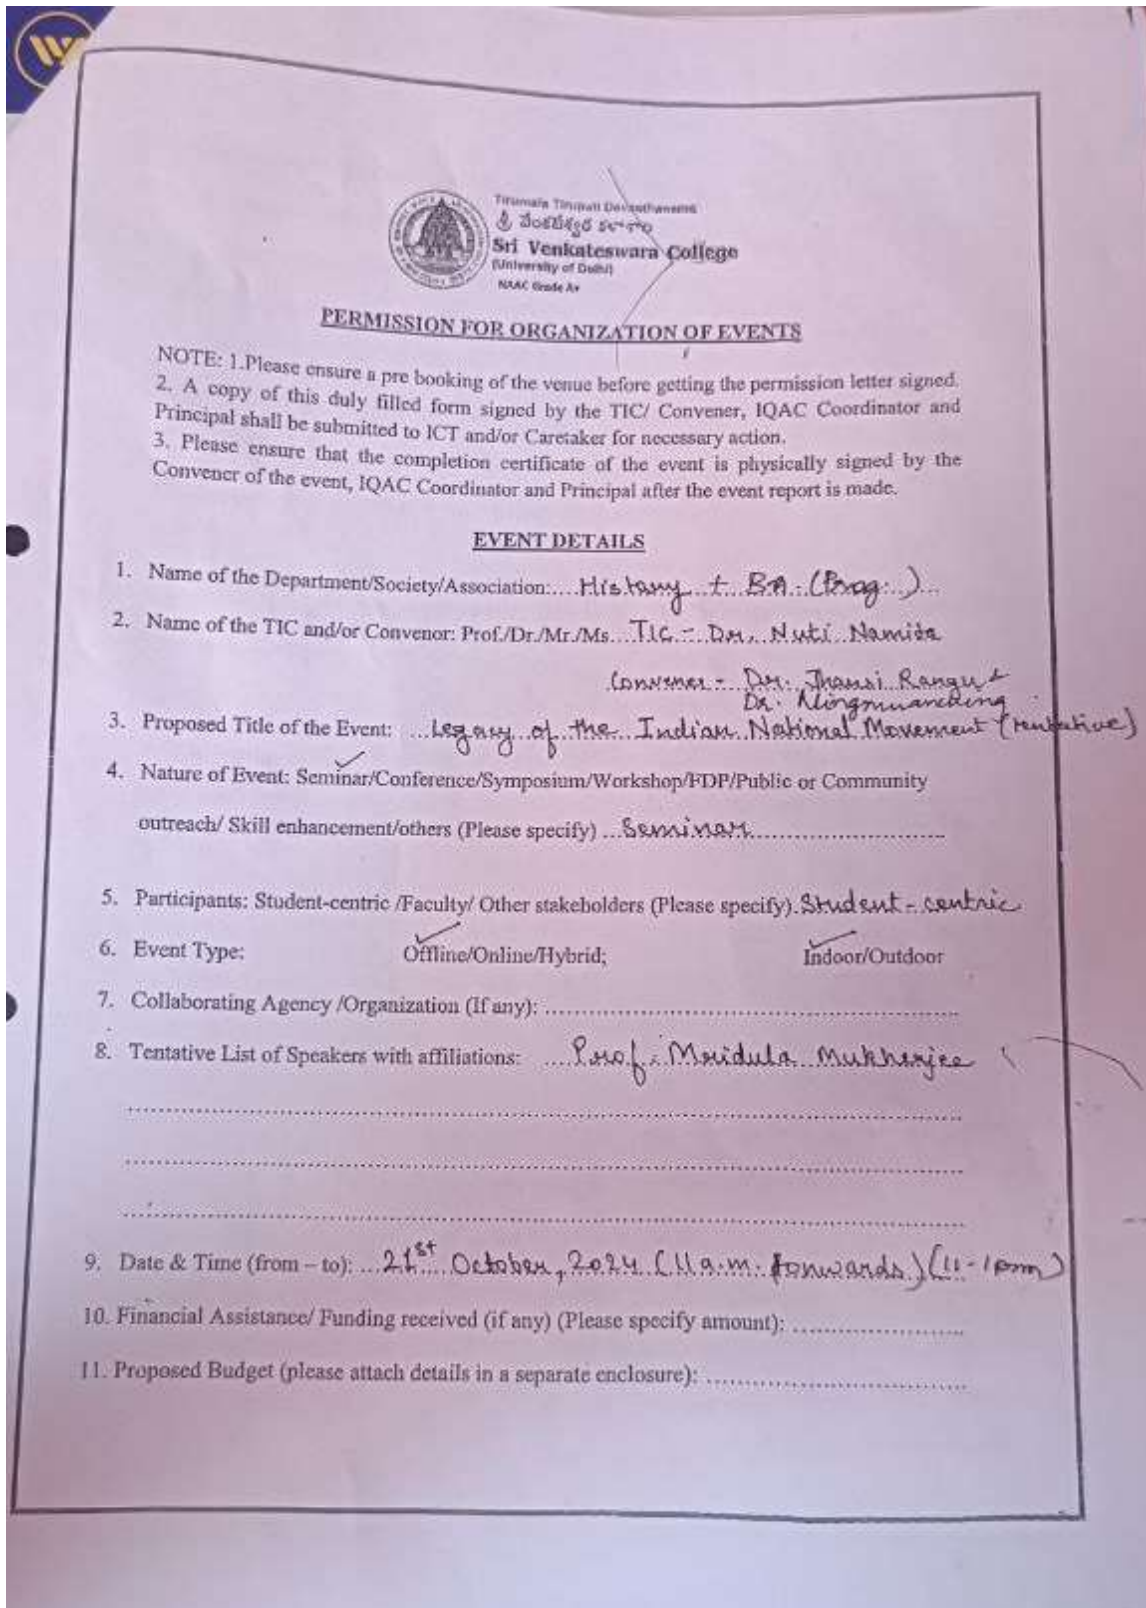 Tirumala Tirupati Devasthanams
శ్రీ వేంకటేశ్వర కళాశాల
Sri Venkateswara College
(University of Delhi)
NAAC Grade A+
PERMISSION FOR ORGANIZATION OF EVENTS
NOTE: 1.Please ensure a pre booking of the venue before getting the permission letter signed.
2. A copy of this duly filled form signed by the TIC/ Convener, IQAC Coordinator and
Principal shall be submitted to ICT and/or Caretaker for necessary action.
3. Please ensure that the completion certificate of the event is physically signed by the
Convener of the event, IQAC Coordinator and Principal after the event report is made.
EVENT DETAILS
1. Name of the Department/Society/Association:.... History + BA (Prog.)...
2. Name of the TIC and/or Convenor: Prof./Dr./Mr./Ms...TIC - Dr. Nuti Namita
Convener - Dr. Jhansi Rangu &
Dr. Ningmuanching
3. Proposed Title of the Event: ...Legacy of the Indian National Movement (tentative)
4. Nature of Event: Seminar/Conference/Symposium/Workshop/FDP/Public or Community
outreach/ Skill enhancement/others (Please specify) ...Seminar...............................
5. Participants: Student-centric /Faculty/ Other stakeholders (Please specify).Student-centric
6. Event Type: Offline/Online/Hybrid; Indoor/Outdoor
7. Collaborating Agency /Organization (If any): ................................................................
8. Tentative List of Speakers with affiliations: ....Prof. Mridula Mukherjee
................................................................
................................................................
................................................................
9. Date & Time (from – to): ...21st October, 2024 (11 a.m. onwards) (11-1pm)
10. Financial Assistance/ Funding received (if any) (Please specify amount): .........................
11. Proposed Budget (please attach details in a separate enclosure): ......................................